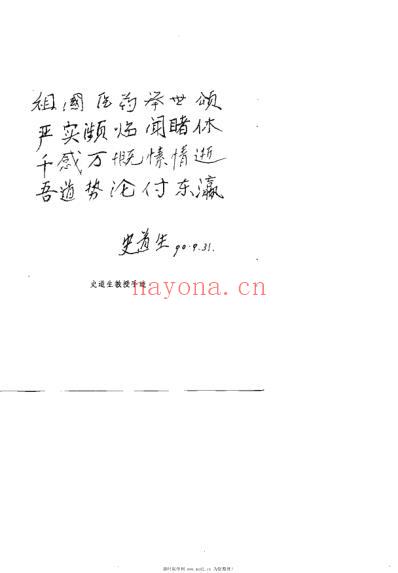 祖國医药举世颂
严实濒临闻睹休
千感万慨愫情逝
吾道势沦付东瀛
史道生 90.9.31.
史道生教授手迹
nayona.cn